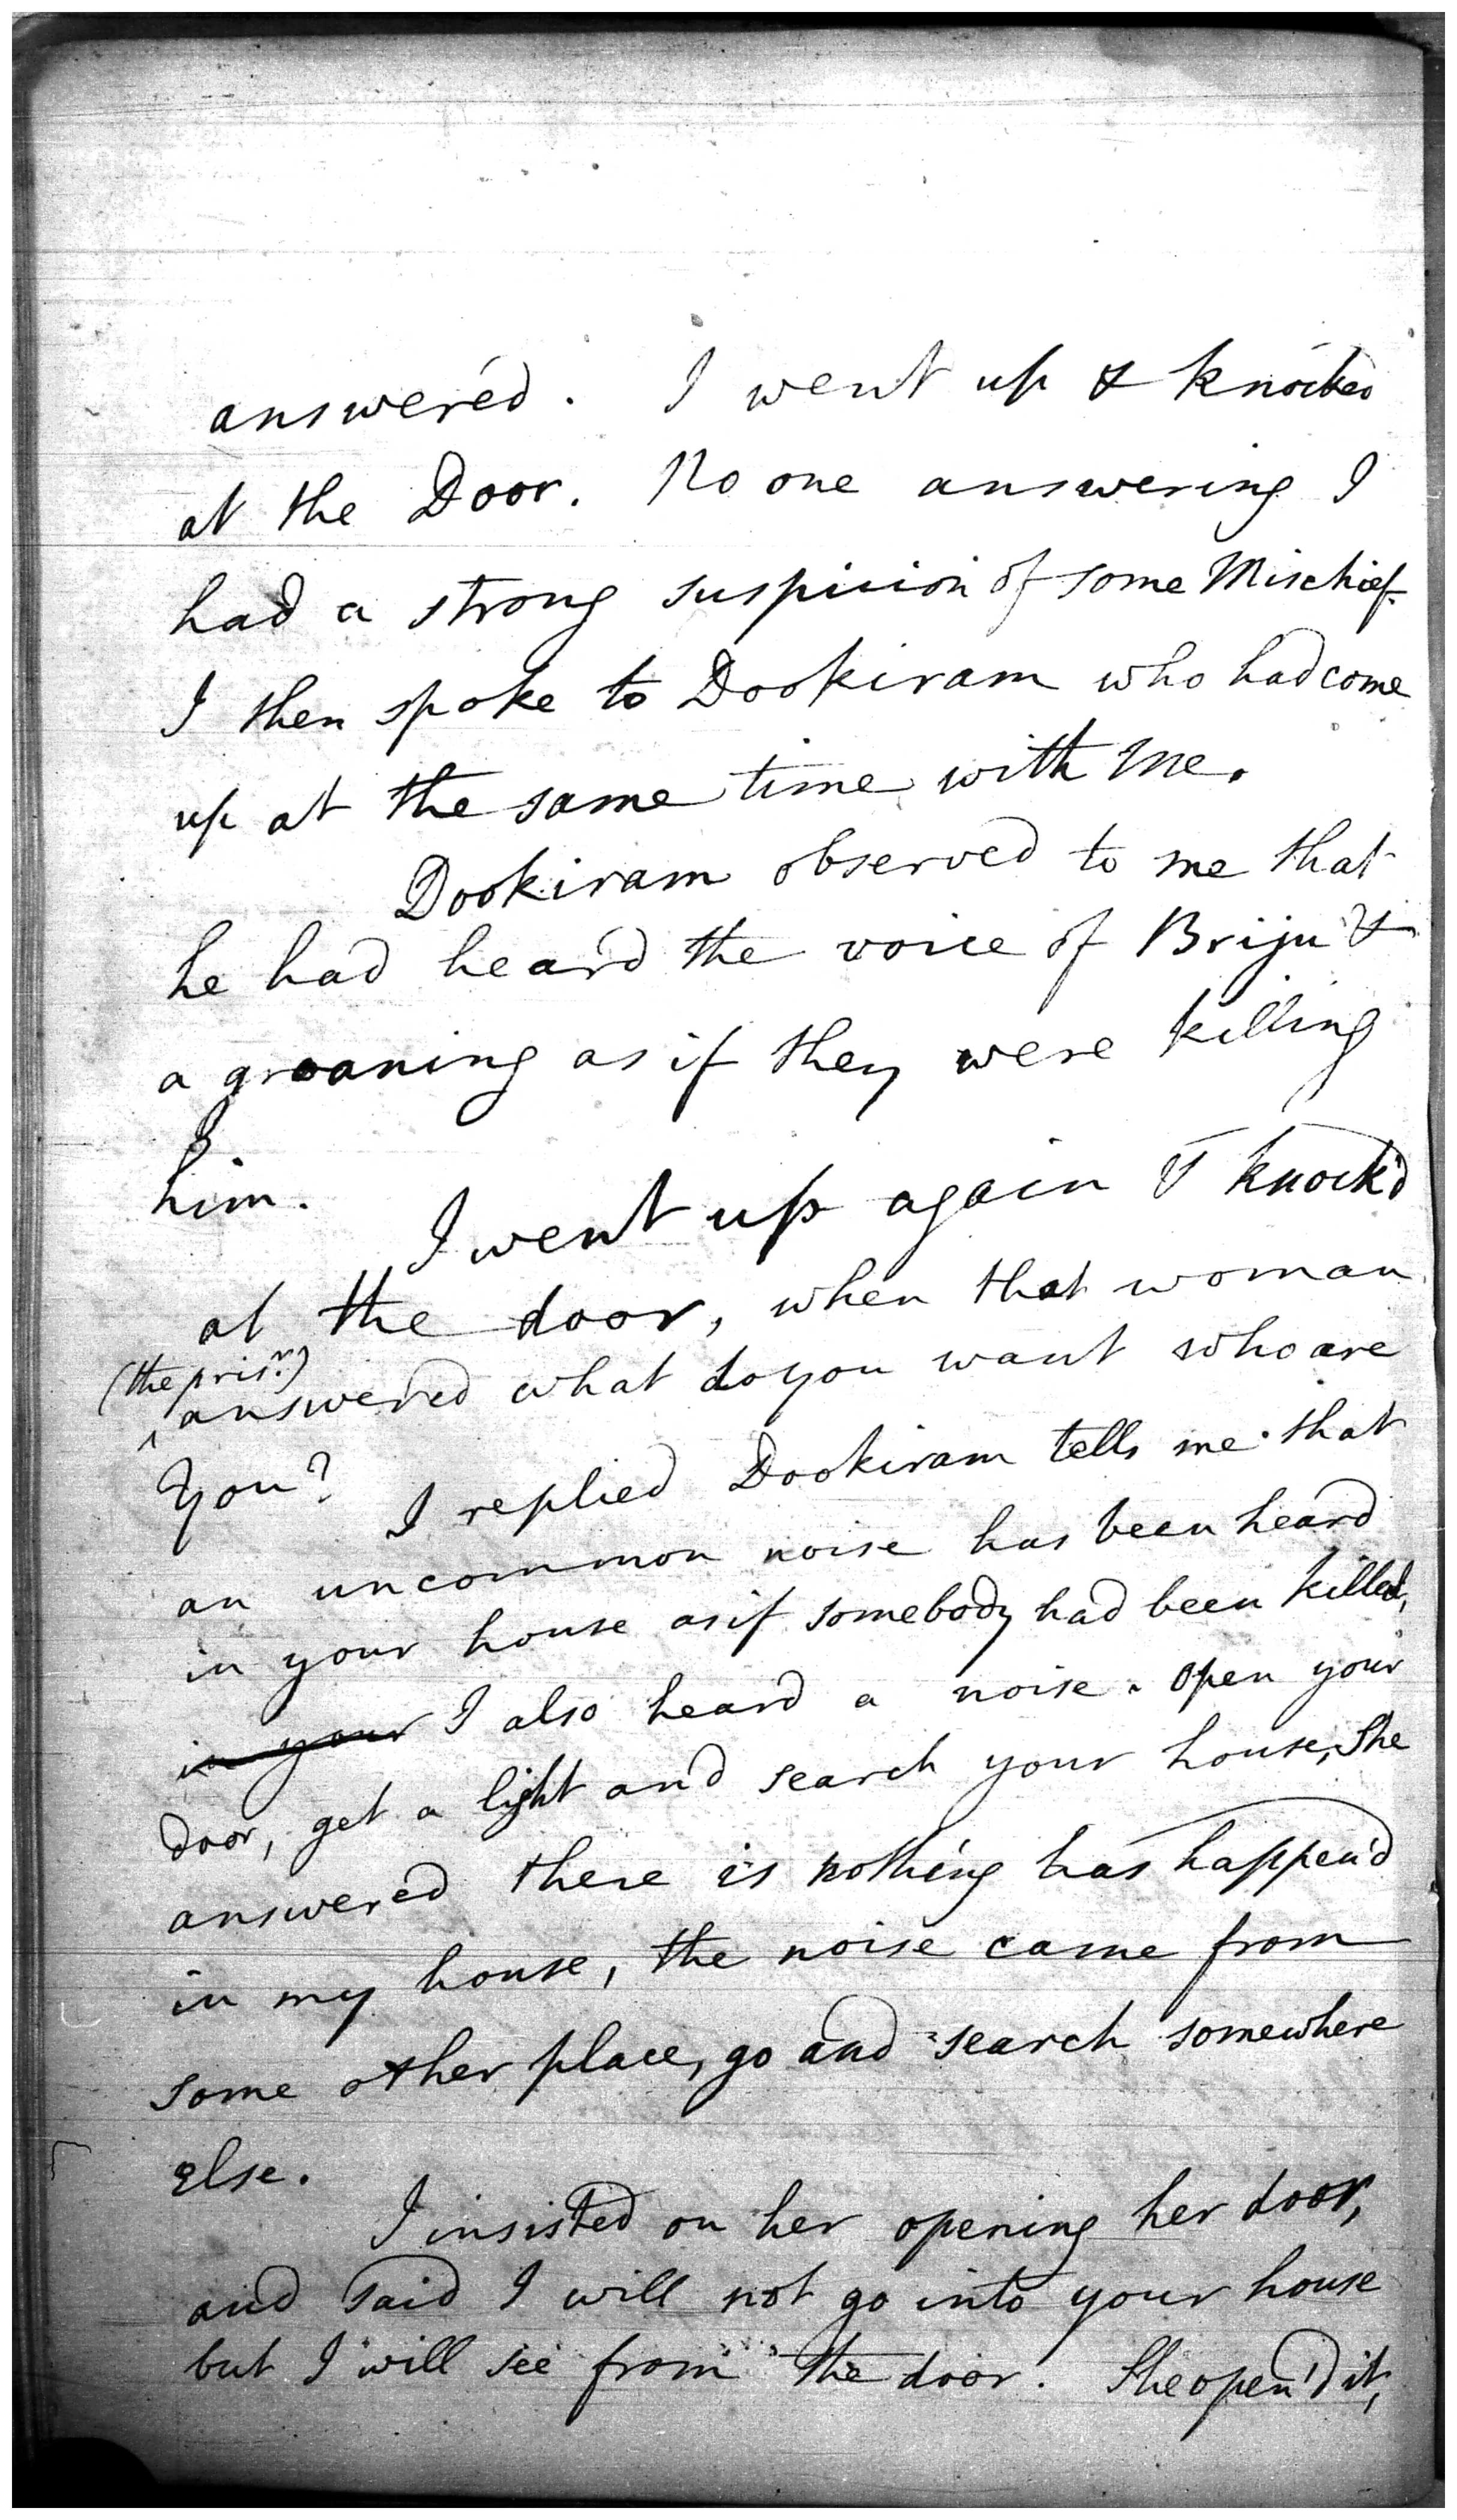 answered. I went up & knocked
at the Door. No one answering I
had a strong suspicion of some Mischief.
I then spoke to Dookiram who had come
up at the same time with Me.
Dookiram observed to me that
he had heard the voice of Briju &
a groaning as if they were killing
him.
I went up again & knock'd
at the door, when that woman
(the prisr.)
^ answered what do you want who are
You?
I replied Dookiram tells me that
an uncommon noise has been heard
in your house as if somebody had been killed,
in your I also heard a noise. open your
door, get a light and search your house, She
answered there is nothing has happen'd
in my house, the noise came from
some other place, go and search somewhere
else.
I insisted on her opening her door,
and said I will not go into your house
but I will see from the door. She open'd it,